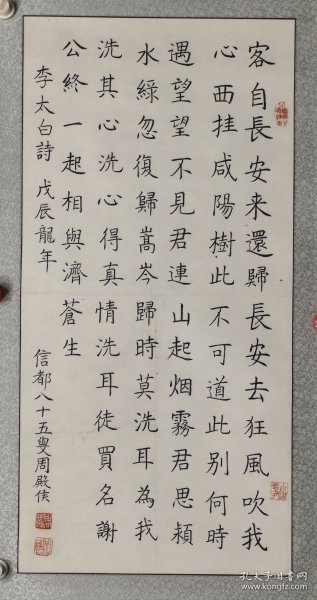 客自長安来還歸長安去狂風吹我
心西挂咸陽樹此不可道此別何時
遇望望不見君連山起烟霧君思潁
水綠忽復歸嵩岑歸時莫洗耳為我
洗其心洗心得真情洗耳徒買名謝
公終一起相與濟蒼生
李太白詩 戊辰龍年
信都八十五叟周殿侯
孔夫子旧书网